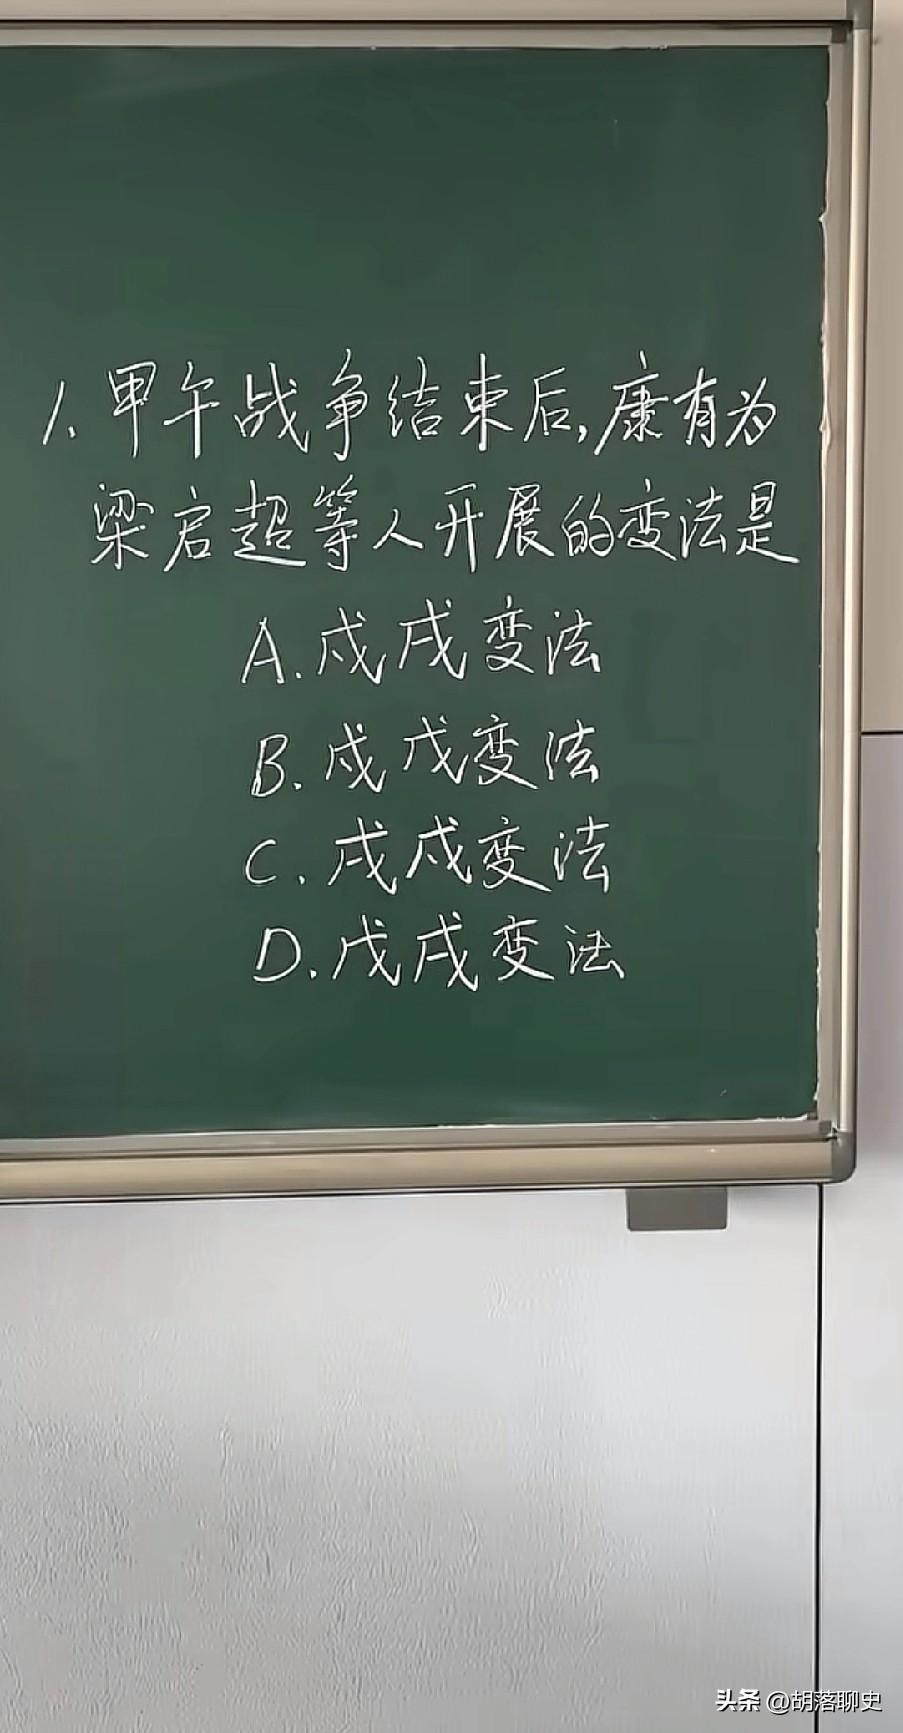 1.甲午战争结束后,康有为
梁启超等人开展的变法是
A.戍戌变法
B.戍戊变法
C.戌戍变法
D.戊戌变法
头条 @胡落聊史